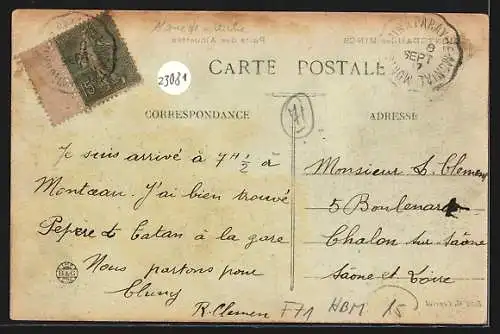 23081
CARTE POSTALE
CORRESPONDANCE
ADRESSE
Je suis arrivé à 7h ½ à
Montceau. J'ai bien trouvé
Pépère & Tatan à la gare
Nous partons pour
Cluny
R. Clemen
Monsieur L. Clemen
5 Boulenard
Chalon sur Saône
Saône et Loire
8
SEPT
B&G
F71
HBM
15